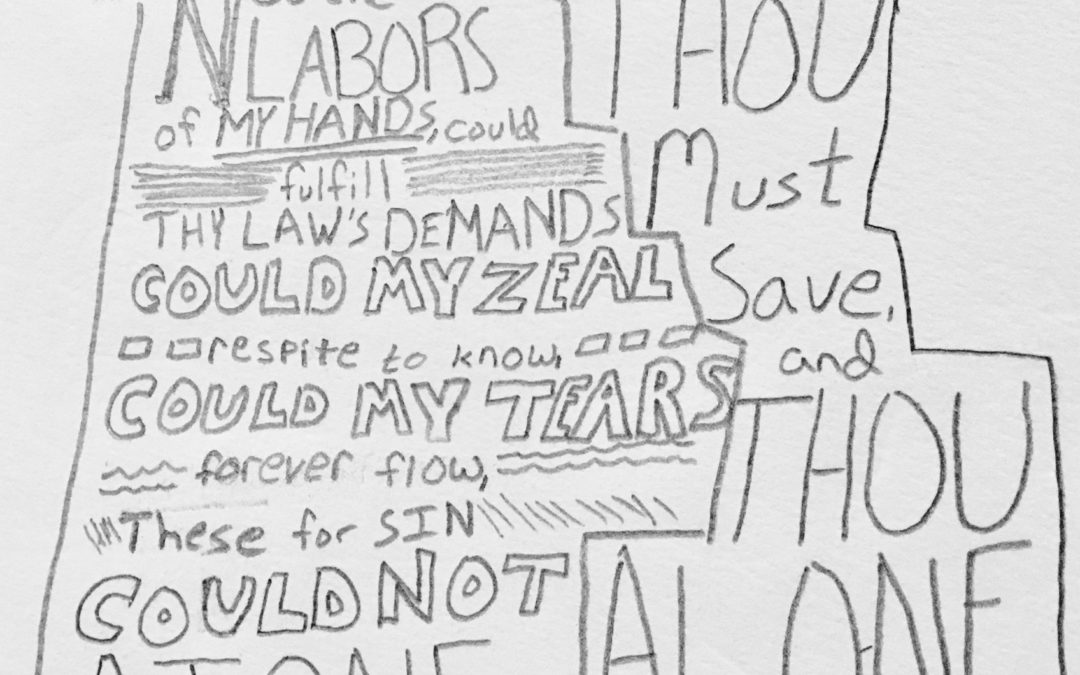 N
LABORS
of MY HANDS, could
fulfill
THY LAW'S DEMANDS
COULD MY ZEAL
respite to know,
COULD MY TEARS
forever flow,
These for SIN
COULD NOT
ATONE
THOU
Must
Save,
and
THOU
ALONE